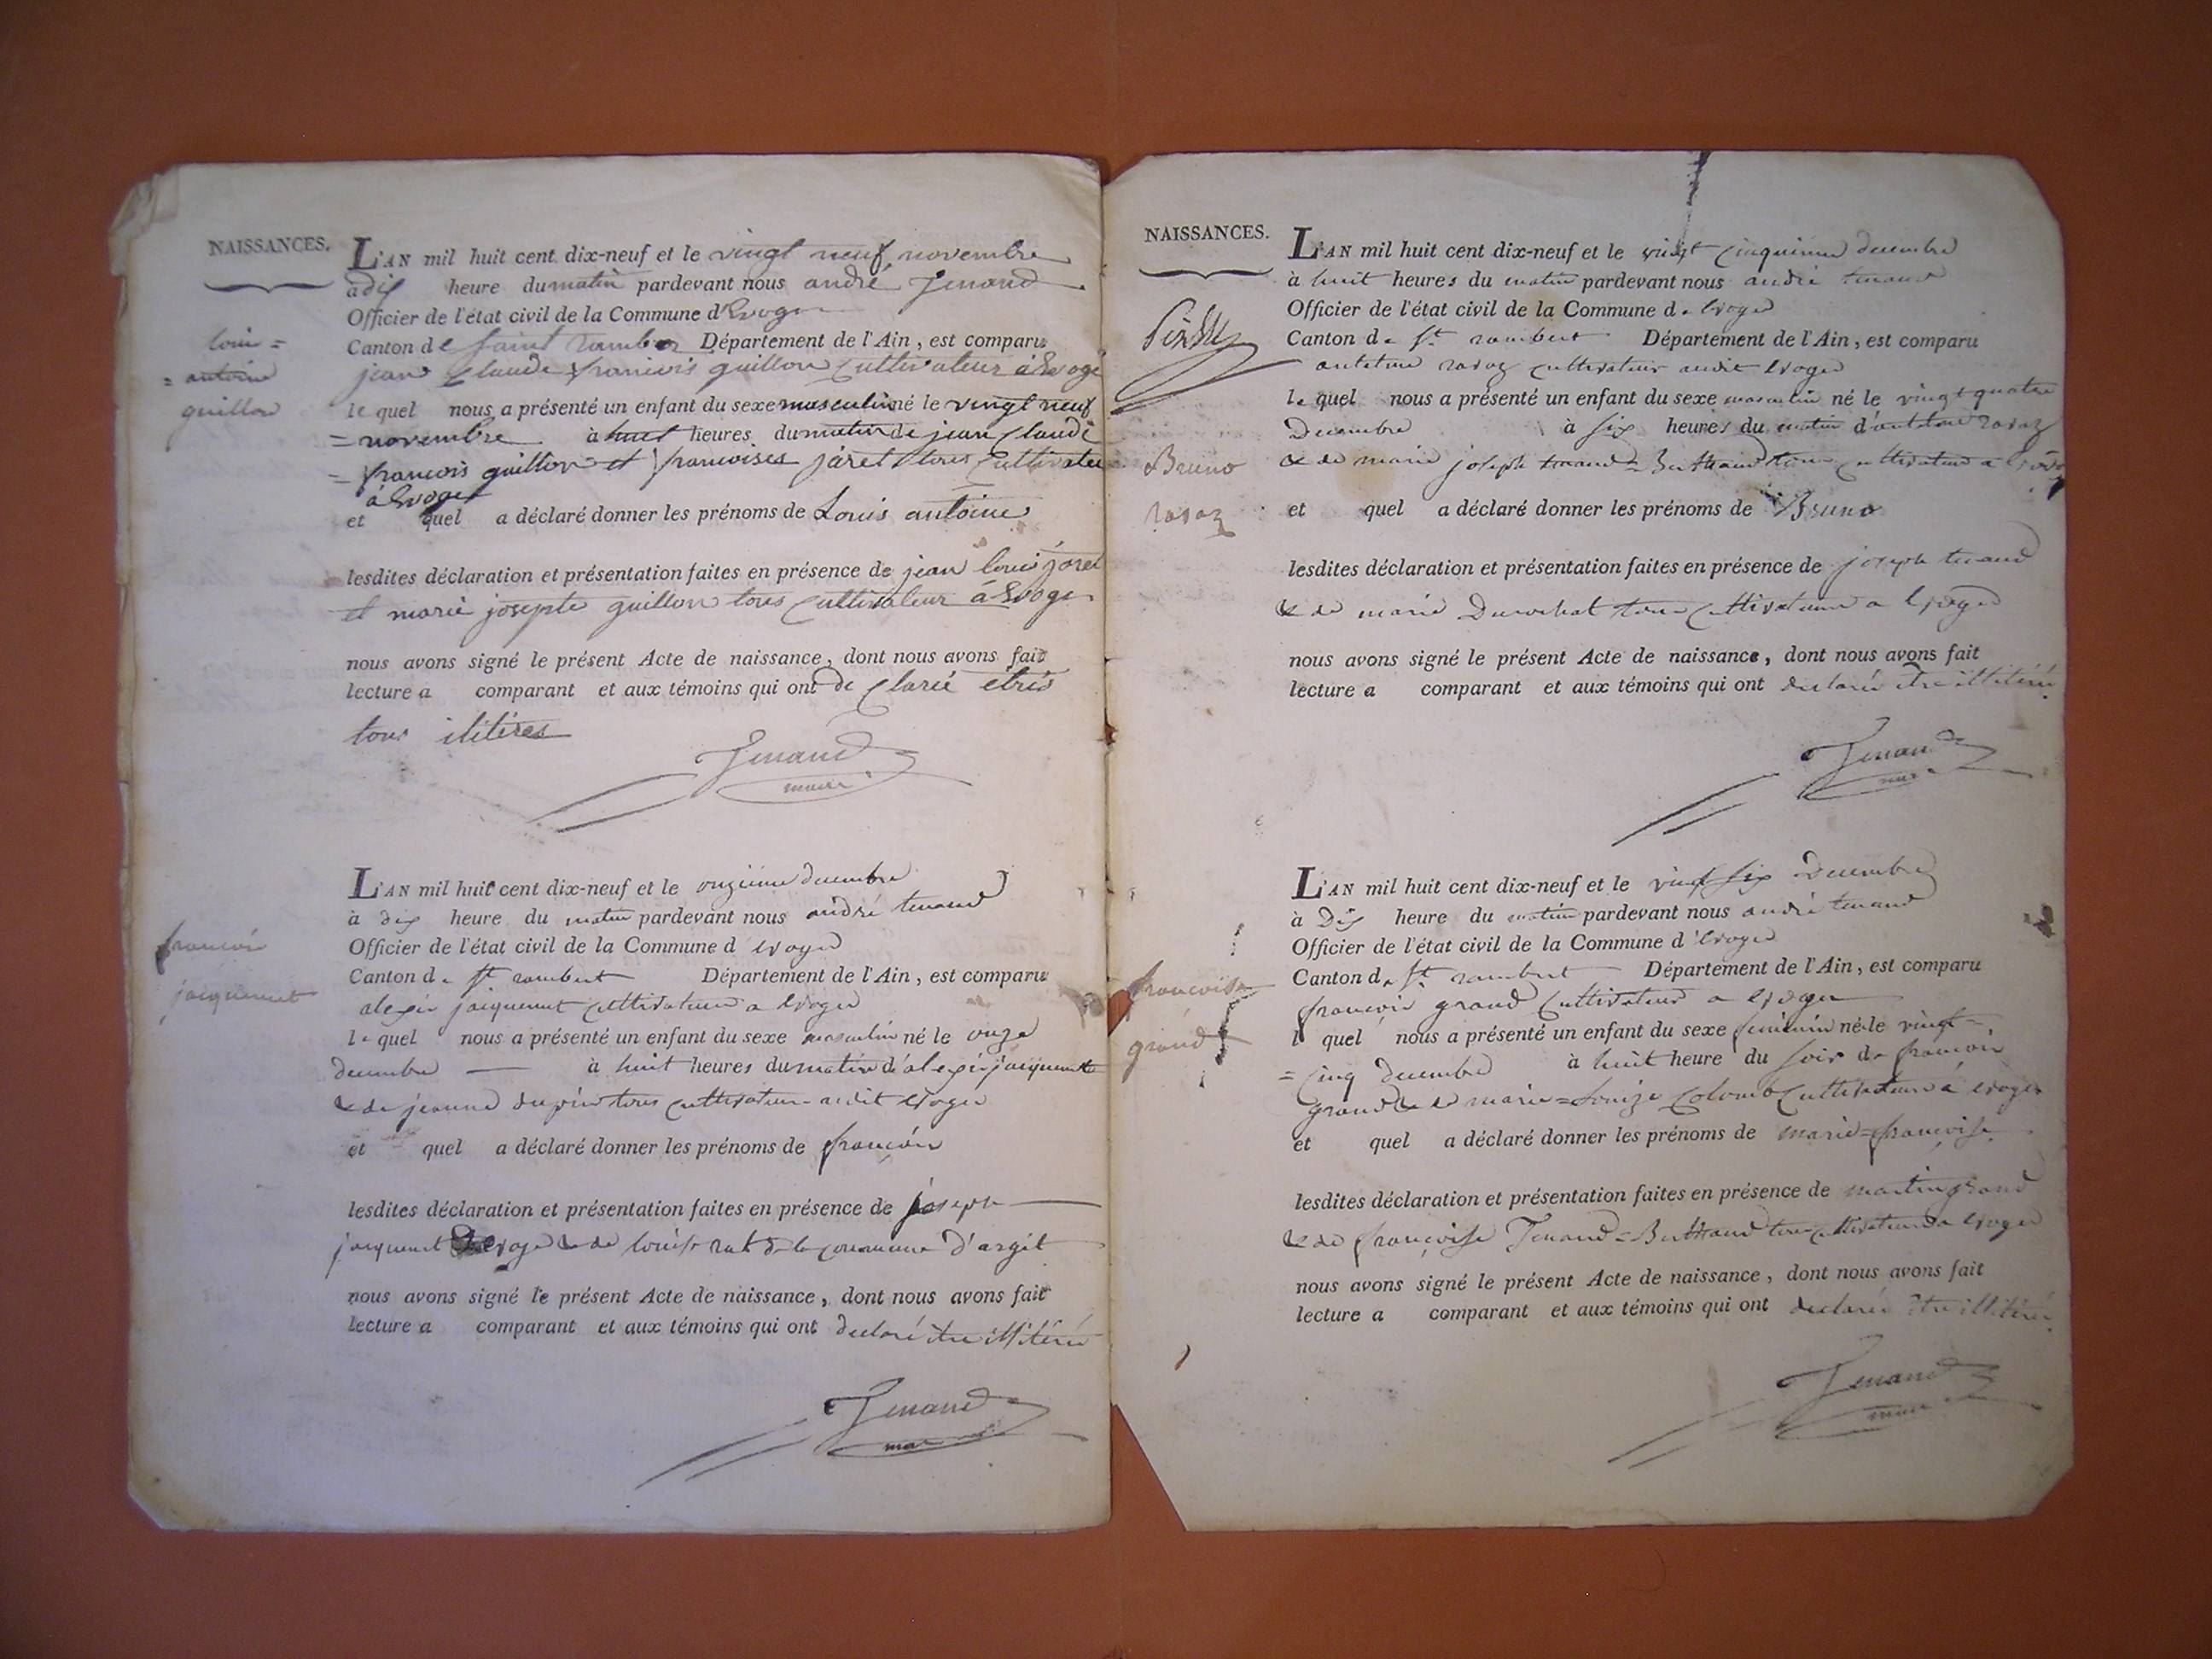 NAISSANCES.
louis =
= antoine
guillon
L'AN mil huit cent dix-neuf et le vingt neuf novembre
a dix heure du matin pardevant nous andré Tenand
Officier de l'état civil de la Commune d'Evoges
Canton de saint rambert Département de l'Ain, est comparu
jean claude francois guillon cultivateur à Evoges
le quel nous a présenté un enfant du sexe masculin né le vingt neuf
= novembre à huit heures du matin de jean claude
= francois guillon et francoises jaret tous cultivateur
à Evoges
et quel a déclaré donner les prénoms de Louis antoine
lesdites déclaration et présentation faites en présence de jean louis jaret
et marie josepte guillon tous cultivateur à Evoges
nous avons signé le présent Acte de naissance, dont nous avons fait
lecture a comparant et aux témoins qui ont de clarée etres
tous ilitires
Tenand
maire
francois
jacquemet
L'AN mil huit cent dix-neuf et le onzieme decembre
à dix heure du matin pardevant nous andré tenand
Officier de l'état civil de la Commune d evoges
Canton de st rambert Département de l'Ain, est comparu
alexis jacquemet cultivateur a evoges
le quel nous a présenté un enfant du sexe masculin né le onze
decembre à huit heures du matin d'alexis jacquemet
& de jeanne dupin tous cultivateur audit evoges
et quel a déclaré donner les prénoms de françois
lesdites déclaration et présentation faites en présence de joseph
jacquemet evoges & de louise rat de la commune d'argit
nous avons signé le présent Acte de naissance, dont nous avons fait
lecture a comparant et aux témoins qui ont declaré être illitéré
Tenand
maire
NAISSANCES.
Bruno
ravaz
L'AN mil huit cent dix-neuf et le vingt cinquieme decembre
à huit heures du matin pardevant nous andré tenand
Officier de l'état civil de la Commune de Evoges
Canton de St rambert Département de l'Ain, est comparu
antelme ravaz cultivateur audit Evoges
le quel nous a présenté un enfant du sexe masculin né le vingt quatre
Decembre à six heures du matin d'antelme ravaz
& de marie joseph tenand = Berthand tous cultivateur a Evoges
et quel a déclaré donner les prénoms de Bruno
lesdites déclaration et présentation faites en présence de joseph tenand
& de marie Durochat tous cultivateur a Evoges
nous avons signé le présent Acte de naissance, dont nous avons fait
lecture a comparant et aux témoins qui ont declaré être illitéré
Tenand
maire
francoise
grand
L'AN mil huit cent dix-neuf et le vingt six Decembre
à Dix heure du matin pardevant nous andré tenand
Officier de l'état civil de la Commune d'Evoges
Canton de St rambert Département de l'Ain, est comparu
françois grand cultivateur a evoges
l quel nous a présenté un enfant du sexe feminin né le vingt =
= cinq decembre à huit heure du soir de françois
grand & de marie = Louise Colomb cultivateur à evoges
et quel a déclaré donner les prénoms de marie = françoise
lesdites déclaration et présentation faites en présence de martin grand
& de françoise Tenand = Berthand tous cultivateur a evoges
nous avons signé le présent Acte de naissance, dont nous avons fait
lecture a comparant et aux témoins qui ont declaré être illitéré
Tenand
maire